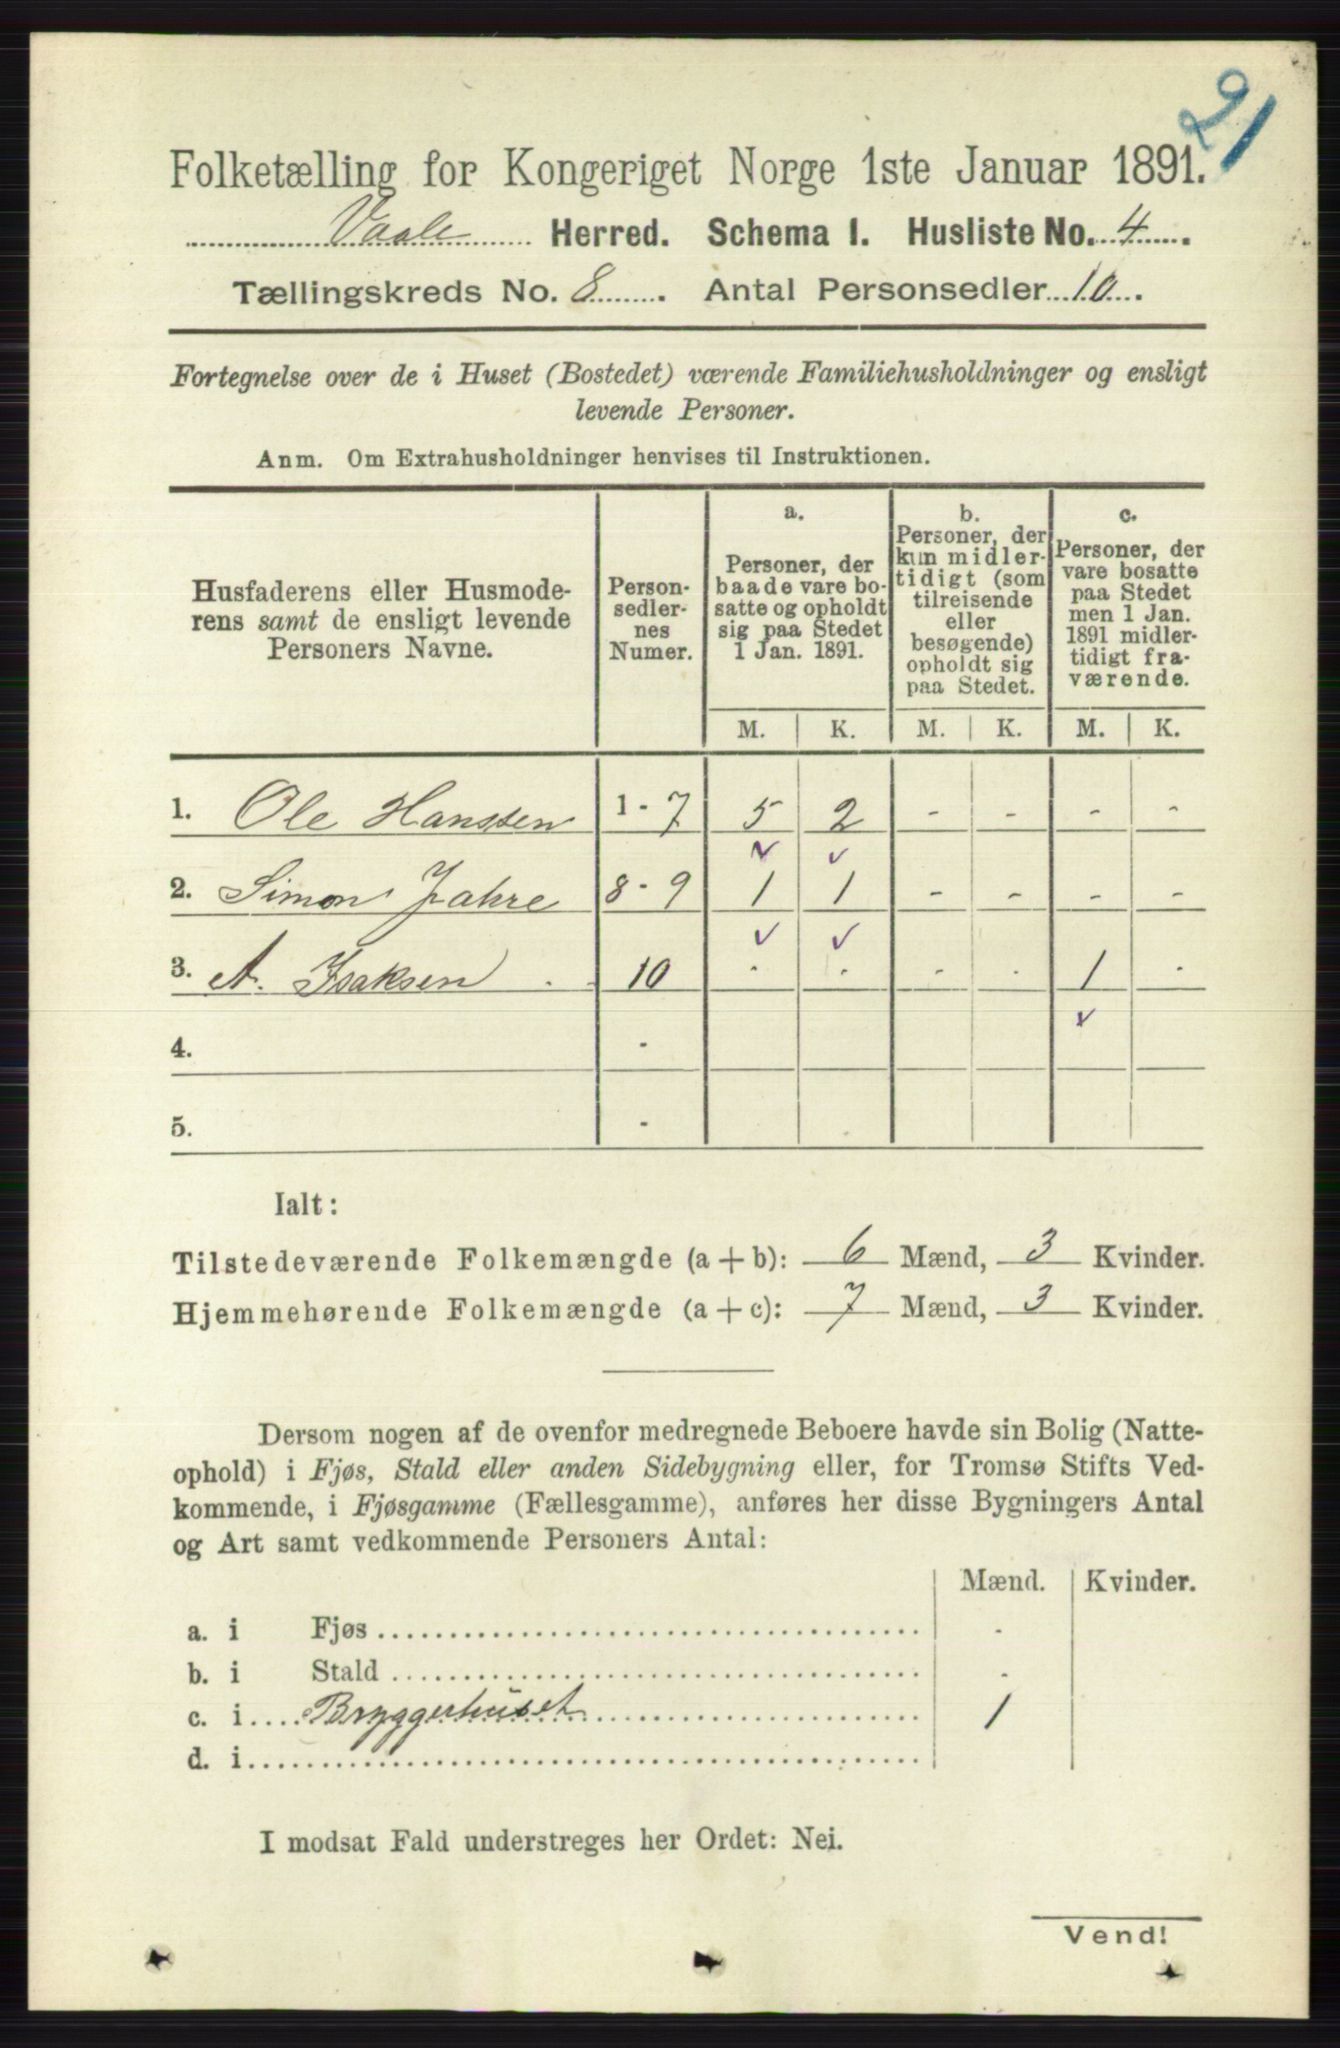 21
Folketælling for Kongeriget Norge 1ste Januar 1891.
Vaale Herred. Schema 1. Husliste No. 4.
Tællingskreds No. 8. Antal Personsedler 10.
Fortegnelse over de i Huset (Bostedet) værende Familiehusholdninger og ensligt
levende Personer.
Anm. Om Extrahusholdninger henvises til Instruktionen.
Husfaderens eller Husmode-
rens samt de ensligt levende
Personers Navne.
Person-
sedler-
nes
Numer.
a.
Personer, der
baade vare bo-
satte og opholdt
sig paa Stedet
1 Jan. 1891.
b.
Personer, der
kun midler-
tidigt (som
tilreisende
eller
besøgende)
opholdt sig
paa Stedet.
c.
Personer, der
vare bosatte
paa Stedet
men 1 Jan.
1891 midler-
tidigt fra-
værende.
M. K. M. K. M. K.
1. Ole Hanssen 1 - 7 5 2 - - - -
2. Simon Jahre 8 - 9 1 1 - - - -
3. A. Isaksen 10 - - - - 1 -
4. -
5. -
Ialt:
Tilstedeværende Folkemængde (a + b): 6 Mænd, 3 Kvinder.
Hjemmehørende Folkemængde (a + c): 7 Mænd, 3 Kvinder.
Dersom nogen af de ovenfor medregnede Beboere havde sin Bolig (Natte-
ophold) i Fjøs, Stald eller anden Sidebygning eller, for Tromsø Stifts Ved-
kommende, i Fjøsgamme (Fællesgamme), anføres her disse Bygningers Antal
og Art samt vedkommende Personers Antal:
Mænd. Kvinder.
a. i Fjøs -
b. i Stald -
c. i Bryggerhuset 1
d. i
I modsat Fald understreges her Ordet: Nei.
Vend!